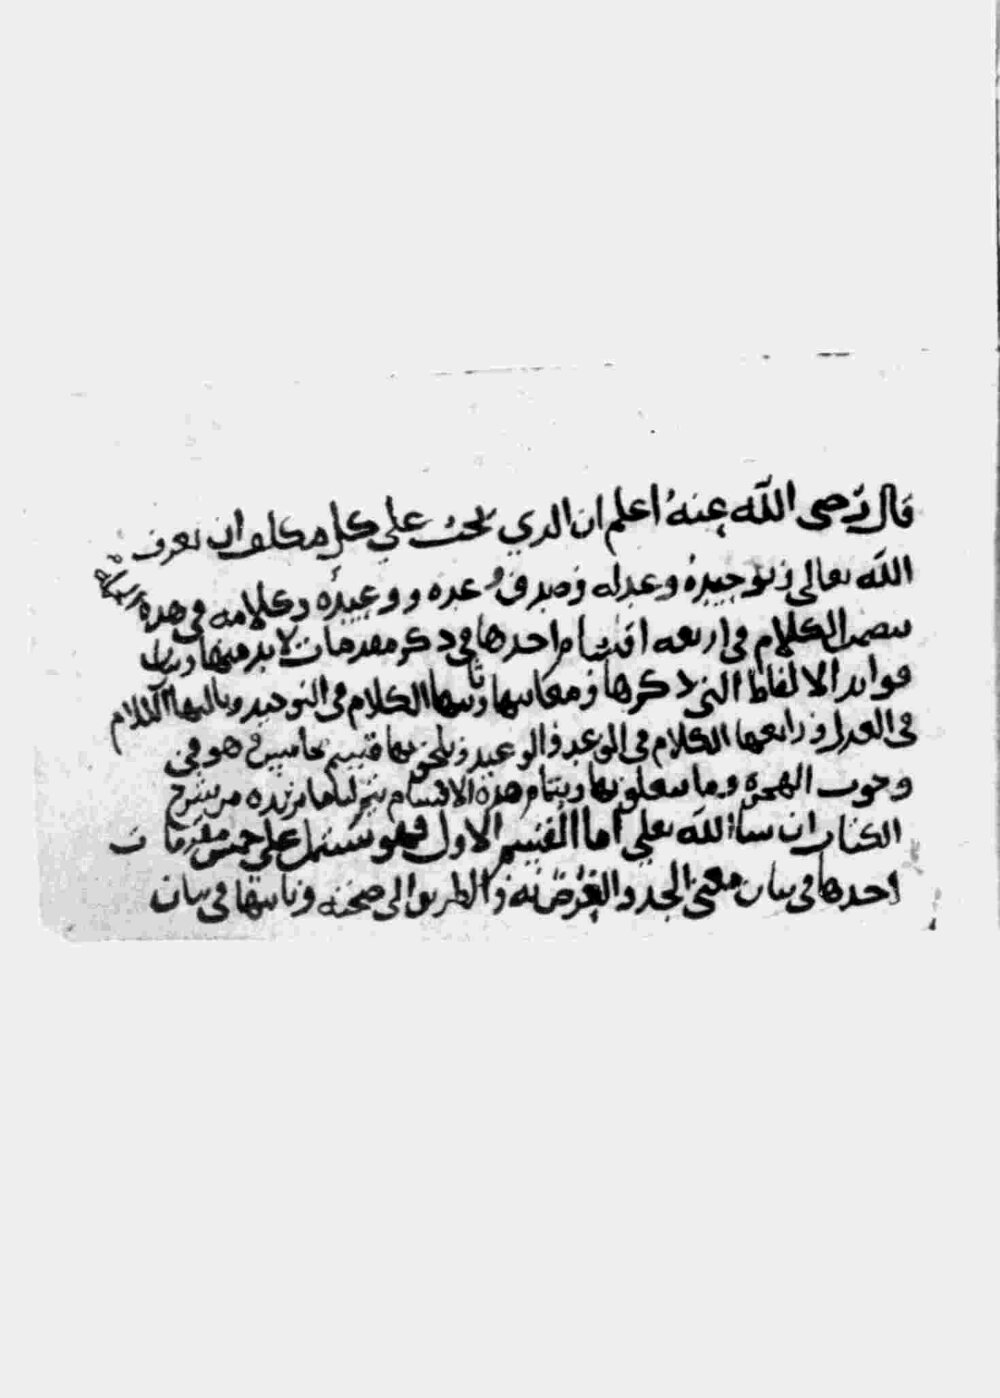 قال رضى الله عنه اعلم ان الذي يجب على كل مكلف ان يعرف
الله تعالى وتوحيده وعدله وصدق وعده ووعيده وكلامه فى هذه الرسالة
يتضمن الكلام فى اربعه اقسام احدها فى ذكر مقدمات لا بد منها وبيان
فوايد الالفاظ التى ذكرها ومعانيها وثانيها الكلام فى التوحيد وثالثها الكلام
فى العدل ورابعها الكلام فى الوعد والوعيد ويلحق بها قسم خامس وهو فى
وجوب الهجرة وما يتعلق بها وبتمام هذه الاقسام يتم لنا ما نريده من شرح
الكتاب ان شا الله تعلى اما القسم الاول فهو يشتمل على خمس مقدمات
احدها فى بيان معنى الحد والغرض به والطريق الى صحته وثانيها فى بيان